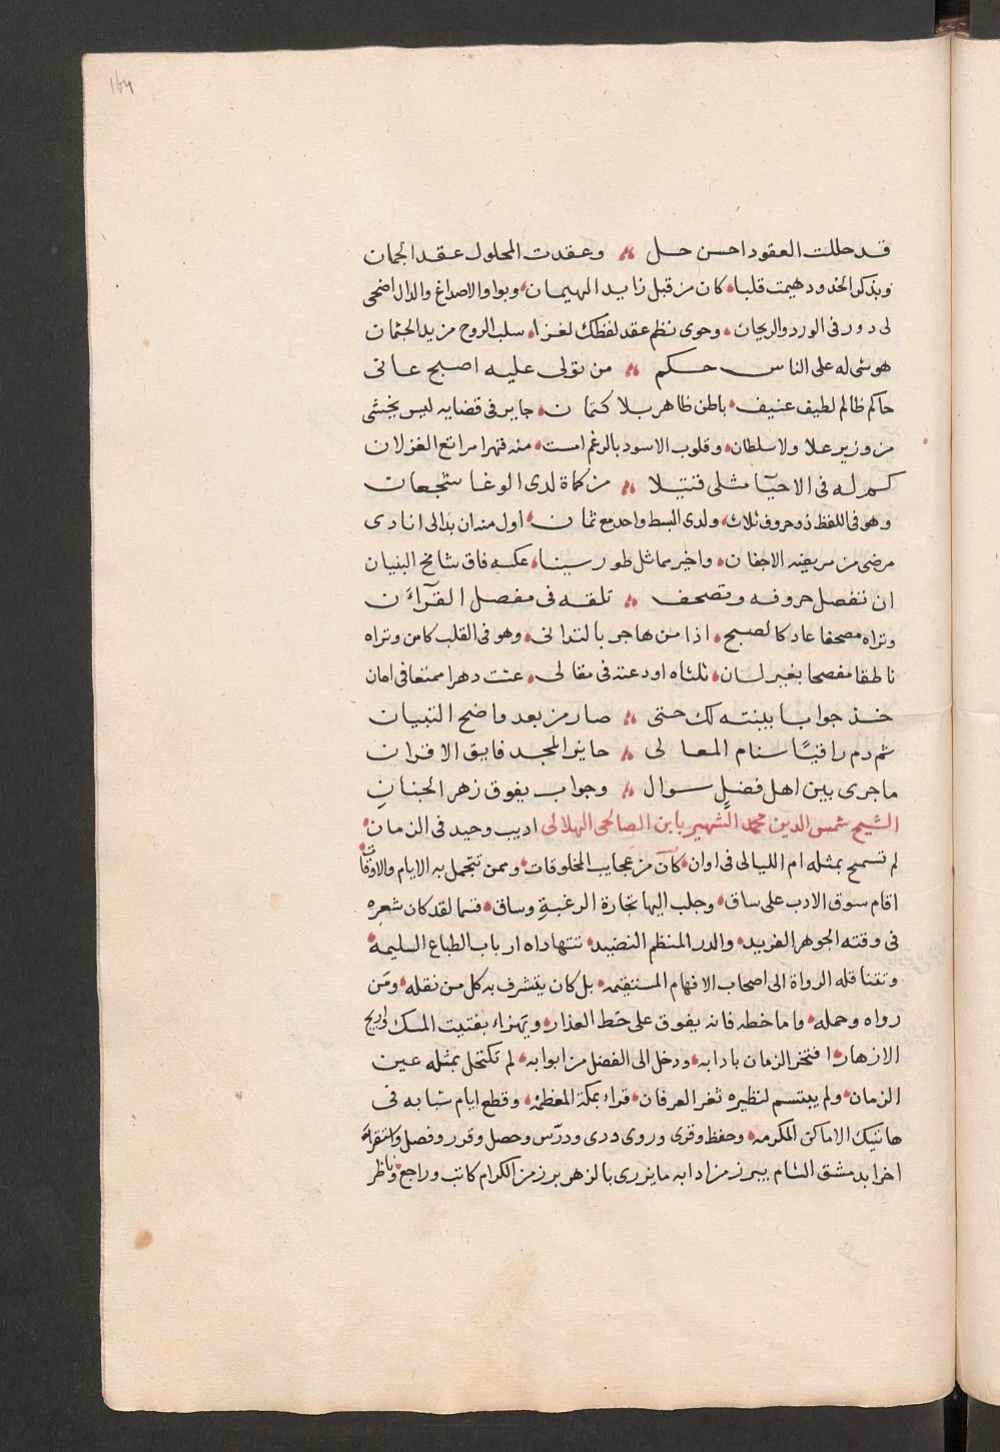 164
قد حللت العقود احسن حل ؞ وعقدت المحلول عقد الجمان
وبذكر الخدود هيمت قلبا ؞ كان من قبل زايد الهيمان ؞ وبواو الاصداغ والدال اضحى
لى دور فى الورد والريحان ؞ وحوى نظم عقد لفظك لغزا ؞ سلب الروح مزيد الجثمان
هو شى له على الناس حكم ؞ من تولى عليه اصبح عانى
حاكم ظالم لطيف عنيف ؞ باطن ظاهر بلا كتمان ؞ جاير فى قضايه ليس يخشى
من وزير علا ولا سلطان ؞ وقلوب الاسود بالرغم امست ؞ منه قهرا مراتع الغزلان
كم له فى الاحيآ مثلى قتيلا ؞ من كماة لدى الوغا شجعان
وهو فى اللفظ ذو حروف ثلاث ؞ ولدى البسط واحد مع ثمان ؞ اول منه ان بدا لى انادى
مرضى من مريضه الاجفان ؞ واخير مماثل طور سينا ؞ عكسه فاق شامخ البنيان
ان تفصل حروفه وتصحف ؞ تلقه فى مفصل القرآن
وتراه مصحفا عاد كالصبح ؞ اذا من هاجر بالتدانى ؞ وهو فى القلب كامن وتراه
ناطقا مفصحا بغير لسان ؞ ثلثاه اودعته فى مقالى ؞ عشت دهرا ممتعا فى امان
خذ جوابا بينته لك حتى ؞ صار من بعد واضح التبيان
ثم دم راقيًا سنام المعالى ؞ حايز المجد فايق الاقران
ما جرى بين اهل فضل سوال ؞ وجواب يفوق زهر الجنان
الشيخ شمس الدين محمد الشهير بابن الصالحى الهلالى اديب وحيد فى الزمان ؞
لم تسمح بمثله ام الليالى فى اوان ؞ كان من عجايب المخلوقات ؞ وممن تتجمل به الايام والاوقات
اقام سوق الادب على ساق ؞ وجلب اليها تجارة الرغبة وساق ؞ قسما لقد كان شعره
فى وقته الجوهر الفريد ؞ والدر المنظم النضيد ؞ تتهاداه ارباب الطباع السليمة ؞
وتتناقله الرواة الى اصحاب الافهام المستقيمه ؞ بل كان يتشرف به كل من نقله ؞ ومن
رواه وحمله ؞ واما خطه فانه يفوق على خط العذار ؞ ويهزاء بفتيت المسك واريج
الازهار ؞ افتخر الزمان بادابه ؞ ودخل الى الفضل من ابوابه ؞ لم تكتحل بمثله عين
الزمان ؞ ولم يبتسم لنظيره ثغر العرفان ؞ قراء بمكة المعظمة ؞ وقطع ايام شبابه فى
هاتيك الاماكن المكرمه ؞ وحفظ وقرى وروى ودرى ودرّس وحصل وقرر وفصل واستقراء
اخرا بدمشق الشام يبرز من ادابه ما يزرى بالزهر برز من الكرام كاتب وراجع وناظر